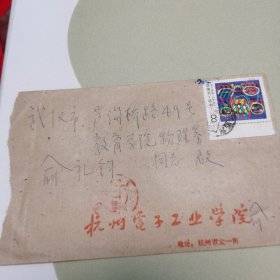 武汉市 芦沟桥路49号
教育学院物理系
俞礼钧 同志 启
杭州电子工业学院
地址：杭州市文一街